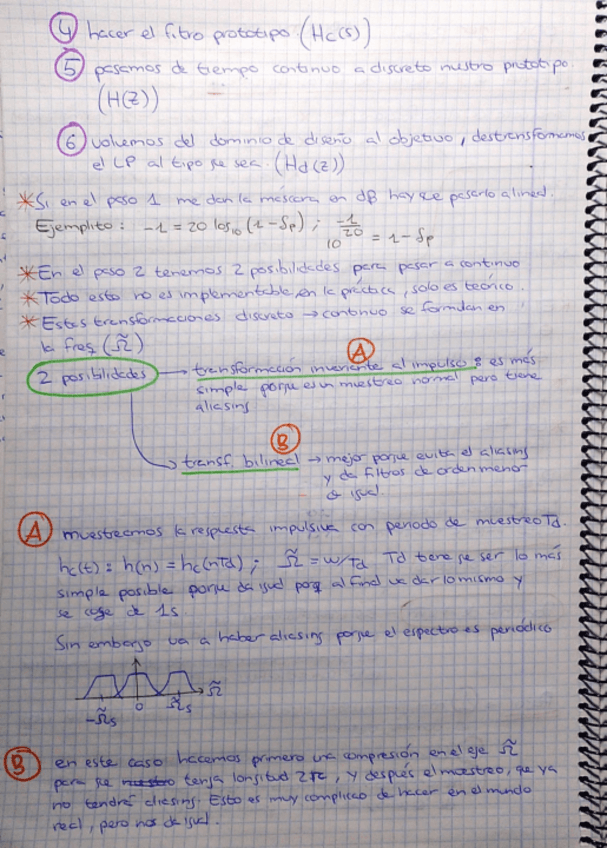 ④ hacer el filtro prototipo (Hc(s))
⑤ pasamos de tiempo continuo a discreto nuestro prototipo.
(H(z))
⑥ volvemos del dominio de diseño al objetivo, destransformamos
el LP al tipo que sea. (Hd(z))
*Si en el paso 1 me dan la máscara en dB hay que pasarlo a lineal.
Ejemplito: -1 = 20 log₁₀ (1-δp) ; 10^(-1/20) = 1-δp
*En el paso 2 tenemos 2 posibilidades para pasar a continuo
*Todo esto no es implementable en la práctica, solo es teórico.
*Estas transformaciones discreto → continuo se formulan en
la freq (Ω̃)
A
2 posibilidades → transformación invariante al impulso: es más
simple porque es un muestreo normal pero tiene
aliasing
B
→ transf. bilineal → mejor porque evita el aliasing
y da filtros de orden menor
o igual.
A muestreamos la respuesta impulsiva con periodo de muestreo Td.
hc(t) = h(n) = hc(nTd) ; Ω̃ = ω/Td Td tiene que ser lo más
simple posible porque da igual porq al final va dar lo mismo y
se coge de 1s.
Sin embargo va a haber aliasing porque el espectro es periódico
Ω̃
-Ω̃s 0 Ω̃s
B en este caso hacemos primero una compresión en el eje Ω̃
para que tenga longitud 2π, y después el muestreo, que ya
no tendrá aliasing. Esto es muy complicao de hacer en el mundo
real, pero nos da igual.